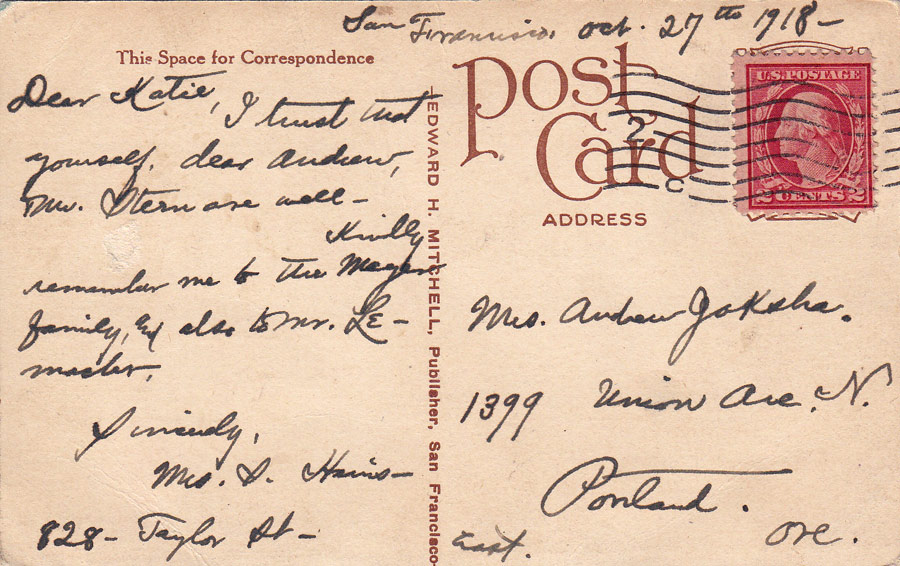 San Francisco, Oct. 27th 1918-
This Space for Correspondence
Dear Katie,
I trust that
yourself, dear Andrew,
Mr. Stern are well-
Kindly
remember me to the Mayer
family, & also to Mr. Le-
master.
Sincerely,
Mrs. S.
828- Taylor St-
EDWARD H. MITCHELL, Publisher, San Francisco
Post
Card
ADDRESS
U.S. POSTAGE
2 CENTS 2
Mrs. Andrew Jaksha.
1399 Union Ave. N.
Portland.
East. Ore.